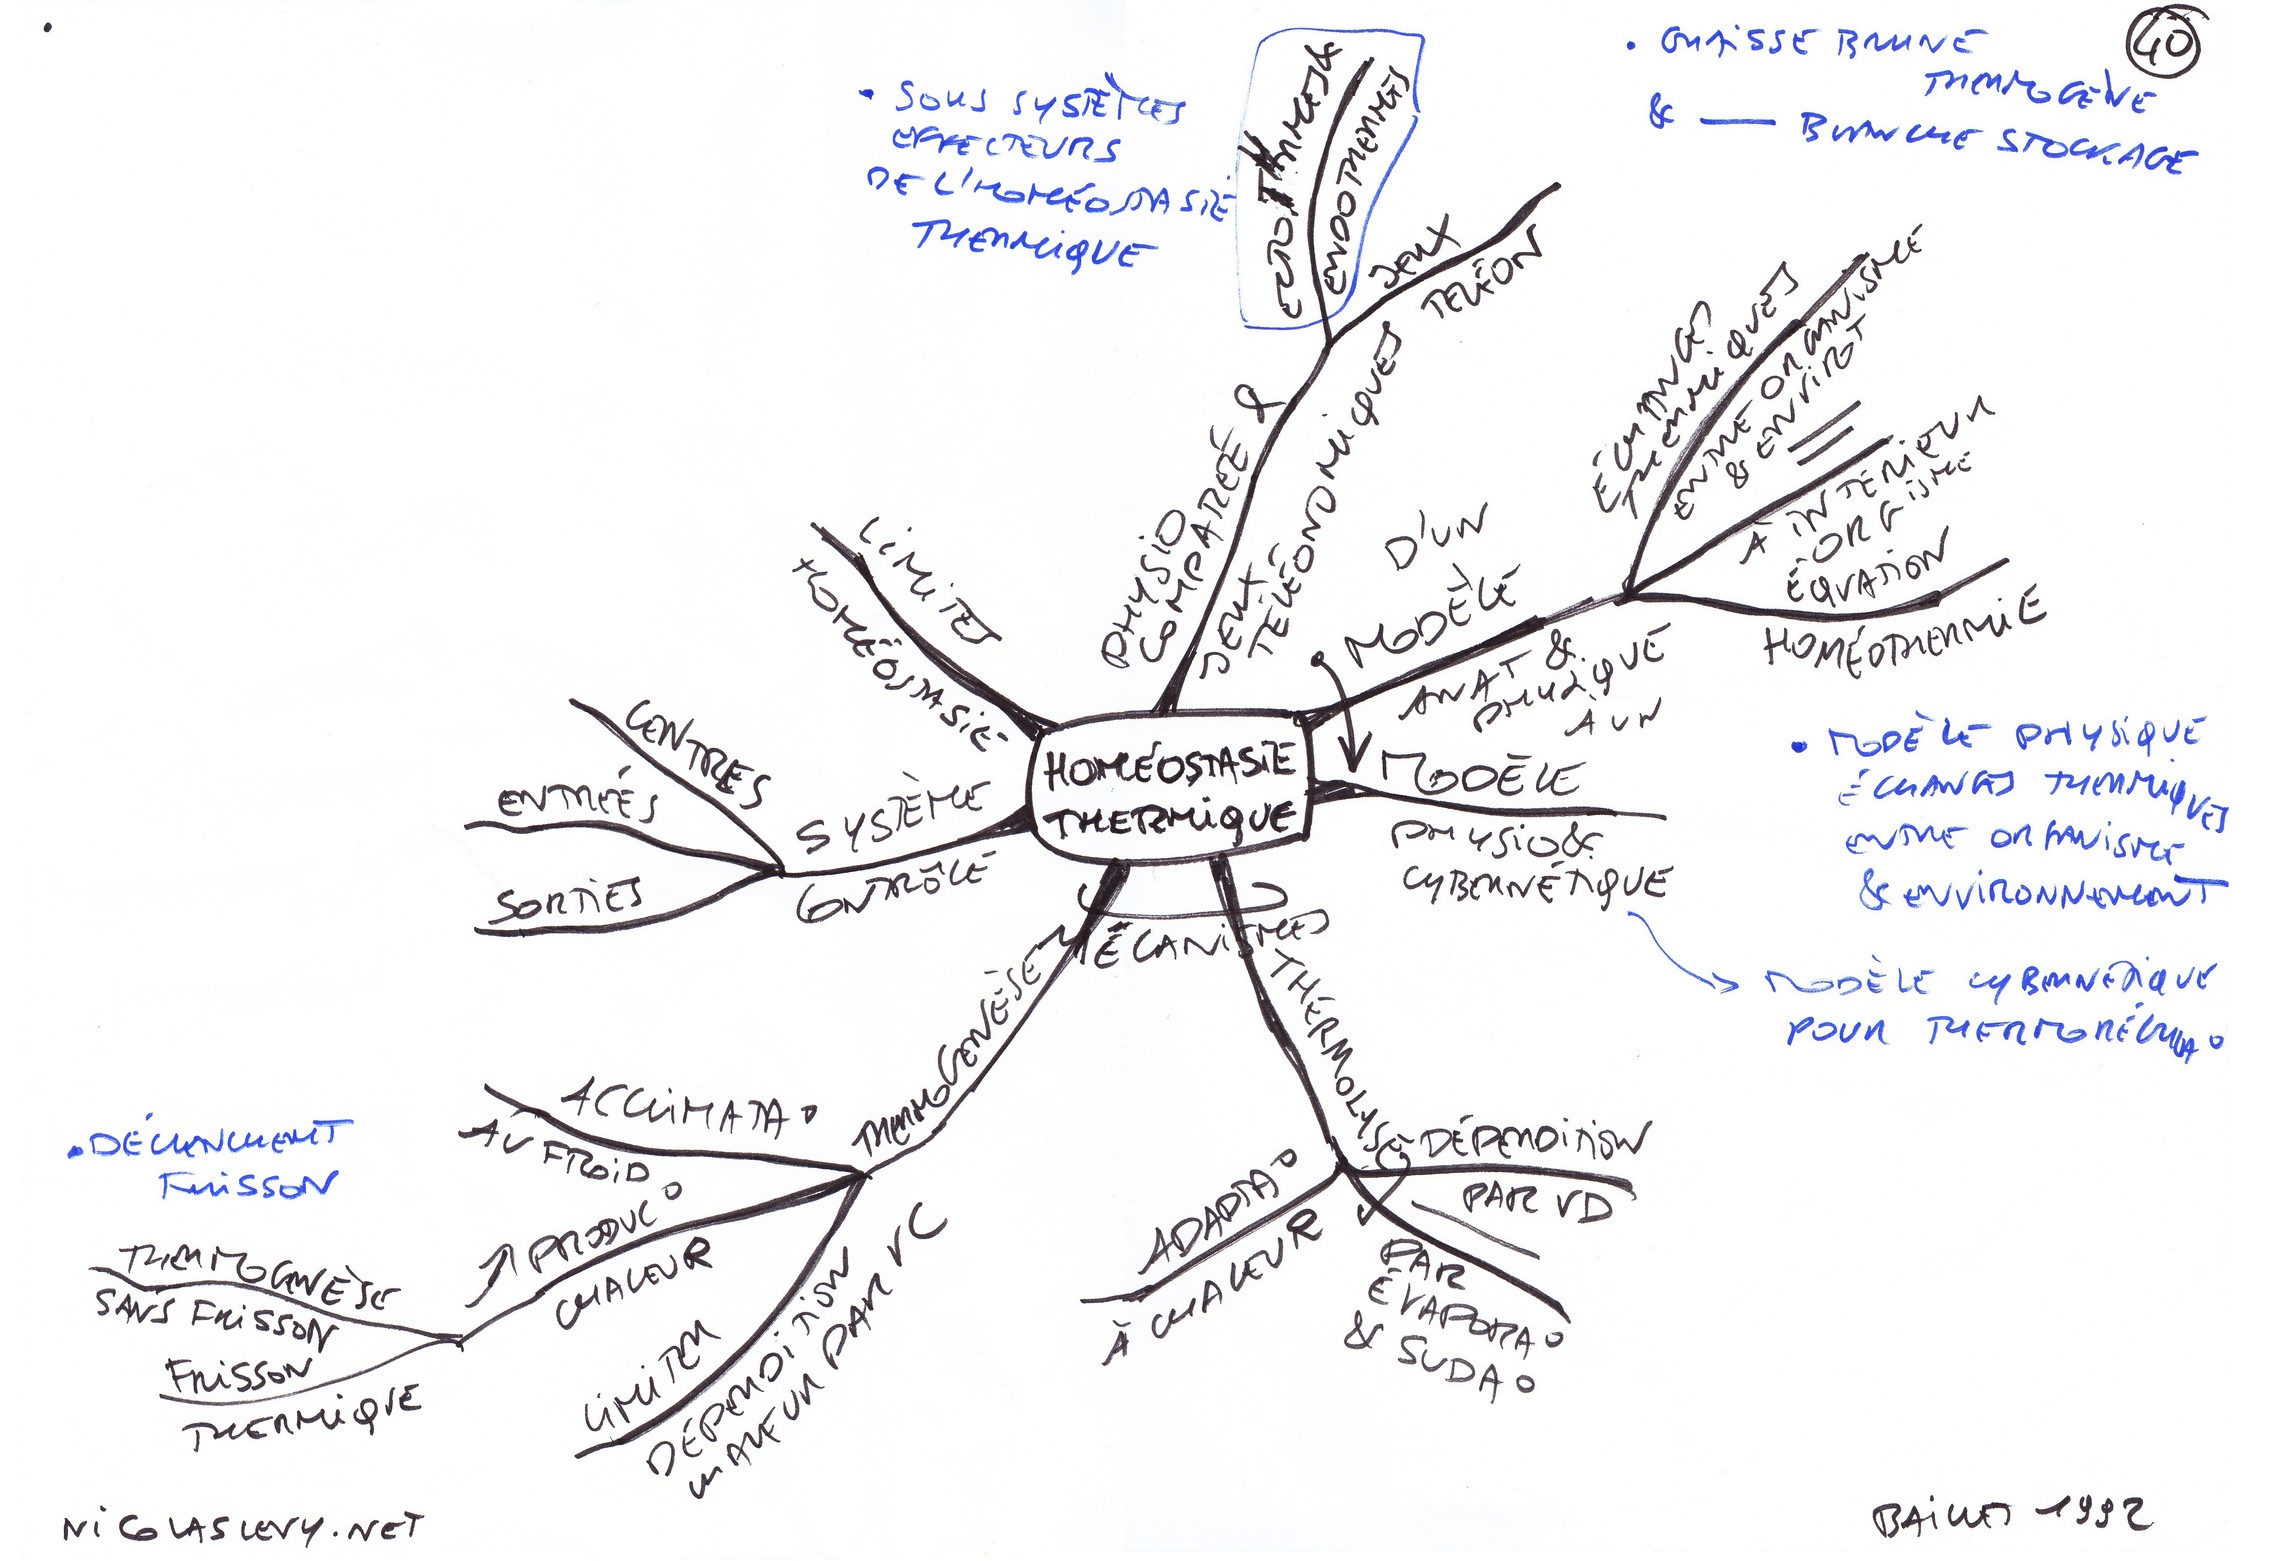 40
• GRAISSE BRUNE
THERMOGÈNE
& — BLANCHE STOCKAGE
• SOUS SYSTÈMES
EFFECTEURS
DE L'HOMÉOSTASIE
THERMIQUE
ECTOTHERMES &
ENDOTHERMES
JEUX
TÉLÉON
PHYSIO
COMPARÉE &
JEUX
TÉLÉONOMIQUES
ÉCHANGES
THERMIQUES
ENTRE ORGANISME
& ENVIROT
=
À INTÉRIEUR
ORGISME
ÉQUATION
HOMÉOTHERMIE
D'UN
MODÈLE
ANAT &
PHYSIQUE
À UN
MODÈLE
PHYSIO &
CYBERNÉTIQUE
• MODÈLE PHYSIQUE
ÉCHANGES THERMIQUES
ENTRE ORGANISME
& ENVIRONNEMENT
→ MODÈLE CYBERNÉTIQUE
POUR THERMORÉGULA°
LIMITES
HOMÉOSTASIE
HOMÉOSTASIE
THERMIQUE
CENTRES
ENTRÉES
SORTIES
SYSTÈME
CONTRÔLE
MÉCANISMES
THERMOGENÈSE
THERMOLYSE
ACCLIMATA°
AU FROID
↗ PRODUC°
CHALEUR
THERMOGENÈSE
SANS FRISSON
FRISSON
THERMIQUE
• DÉCLENCHEMENT
FRISSON
LIMITER
DÉPERDITION
CHALEUR PAR VC
DÉPERDITION
PAR VD
—
PAR
ÉVAPORA°
& SUDA°
ADAPTA°
À CHALEUR
NICOLASLEVY.NET
BAILLET 1992